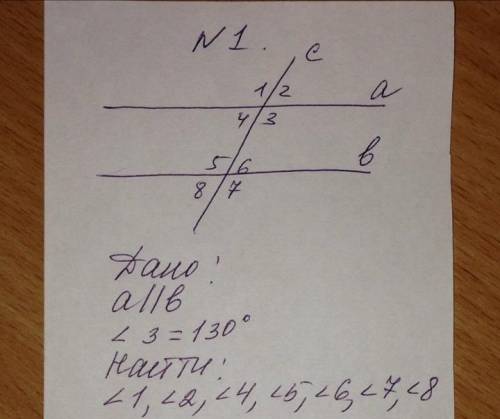 N 1.
c
1 2
a
4 3
5 6
b
8 7
Дано:
a||b
∠3=130°
Найти:
∠1, ∠2, ∠4, ∠5, ∠6, ∠7, ∠8